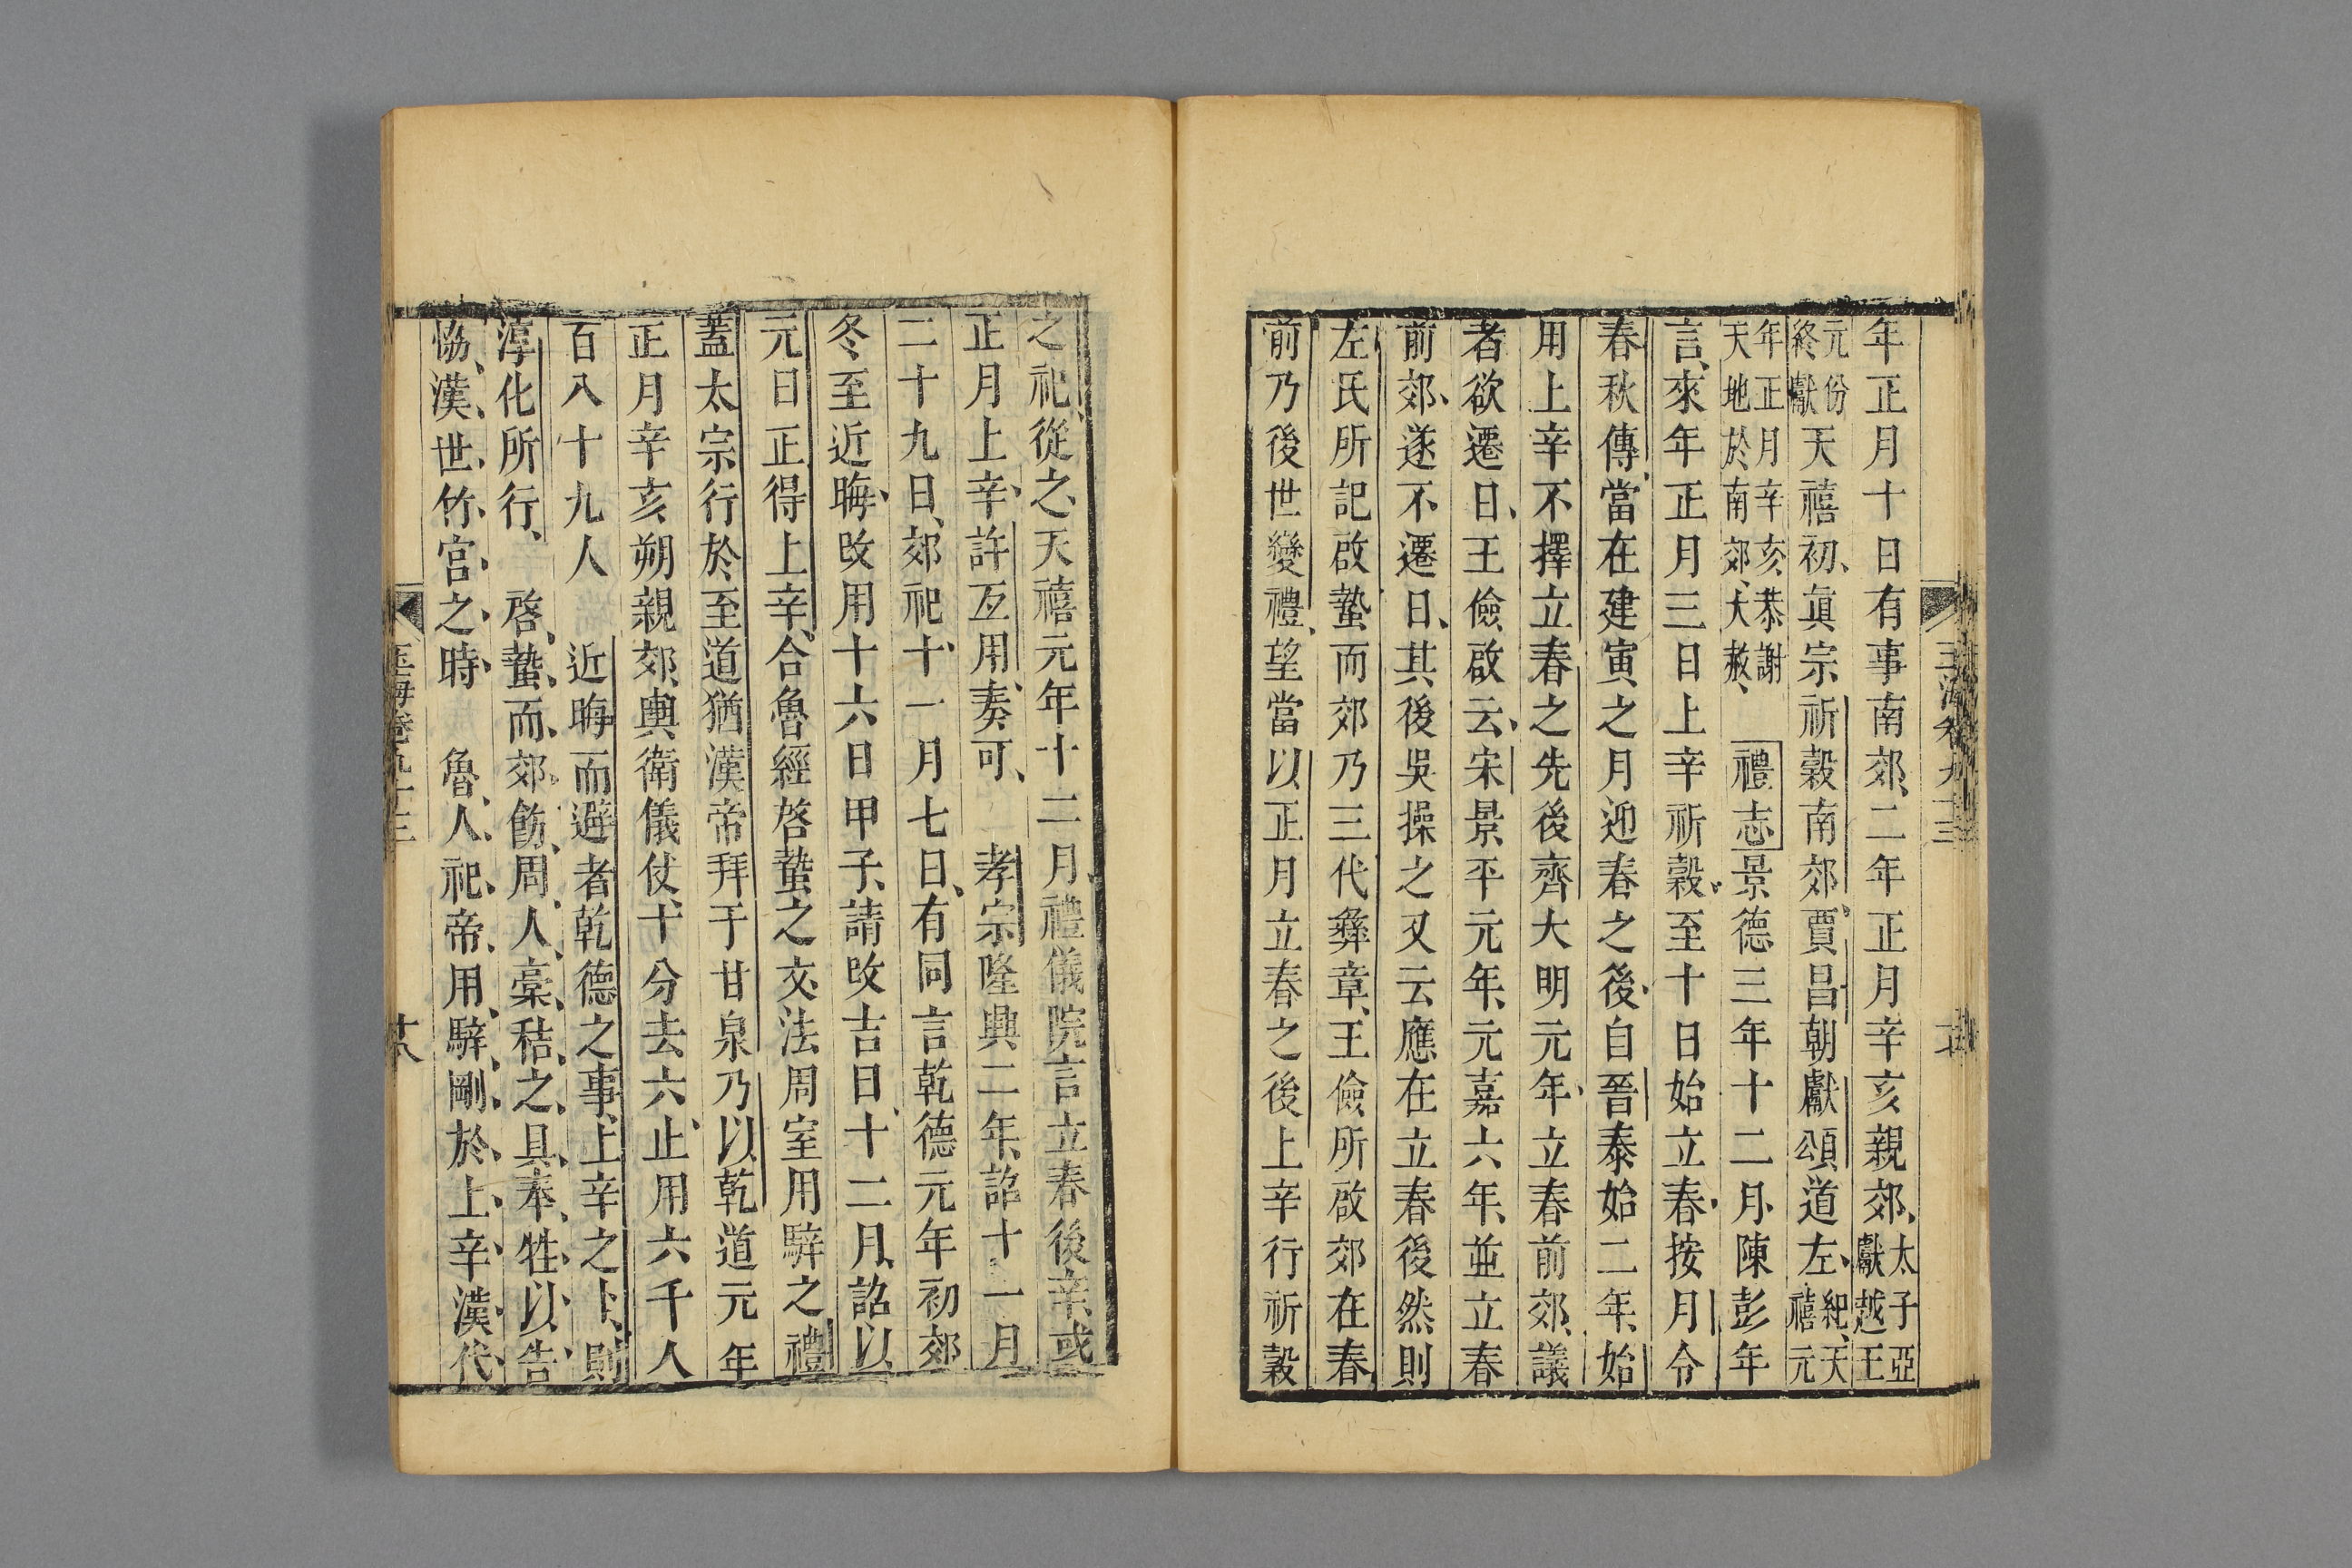 年正月十日有事南郊二年正月辛亥親郊太子亞獻越王
元份終獻天禧初眞宗祈穀南郊賈昌朝獻頌道左紀天禧元
年正月辛亥恭謝天地於南郊大赦禮志景德三年十二月陳彭年
言來年正月三日上辛祈穀至十日始立春按月令
春秋傳當在建寅之月迎春之後自晉泰始二年始
用上辛不擇立春之先後齊大明元年立春前郊議
者欲遷日王儉啟云宋景平元年元嘉六年並立春
前郊遂不遷日其後吳操之又云應在立春後然則
左氏所記啟蟄而郊乃三代彝章王儉所啟郊在春
前乃後世變禮望當以正月立春之後上辛行祈穀
之祀從之天禧元年十二月禮儀院言立春後辛或
正月上辛許互用奏可孝宗隆興二年詔十一月
二十九日郊祀十一月七日有同言乾德元年初郊
冬至近晦改用十六日甲子請改吉日十二月詔以
元日正得上辛合魯經啓蟄之文法周室用騂之禮
蓋太宗行於至道猶漢帝拜于甘泉乃以乾道元年
正月辛亥朔親郊輿衛儀仗十分去六止用六千人
百八十九人近晦而避者乾德之事上辛之卜則
淳化所行啓蟄而郊飭周人槀秸之具奉牲以告
協漢世竹宫之時魯人祀帝用騂剛於上辛漢代
玉海卷九十三